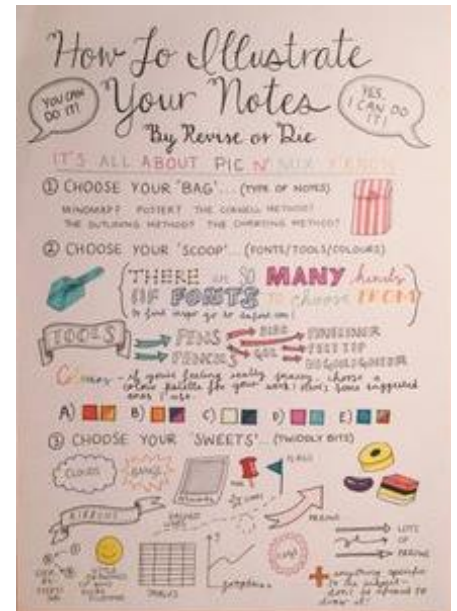 How To Illustrate
YOU CAN
DO IT!
Your Notes
YES,
I CAN DO
IT!
By Revise or Die
IT'S ALL ABOUT PIC N' MIX
① CHOOSE YOUR 'BAG'... (TYPE OF NOTES)
MINDMAP? POSTER? THE CORNELL METHOD?
THE OUTLINING METHOD? THE CHARTING METHOD?
② CHOOSE YOUR 'SCOOP'... (FONTS/TOOLS/COLOURS)
THERE are SO MANY kinds
OF FONTS TO choose FROM
to find
TOOLS
PENS
BIRO
FINELINER
PENCILS
GEL
FELT TIP
HIGHLIGHTER
Colours - if you're feeling really choose a
colour palette for your work! Here's some suggested
ones I use.
A)
B)
C)
D)
E)
③ CHOOSE YOUR 'SWEETS'... (TWIDDLY BITS)
CLOUDS
BANGS
FLAGS
RIBBONS
ARROWS
LOTS
OF
ARROWS
TABLES
graphs
+ anything specific
to the subject -
don't be afraid to
draw it!